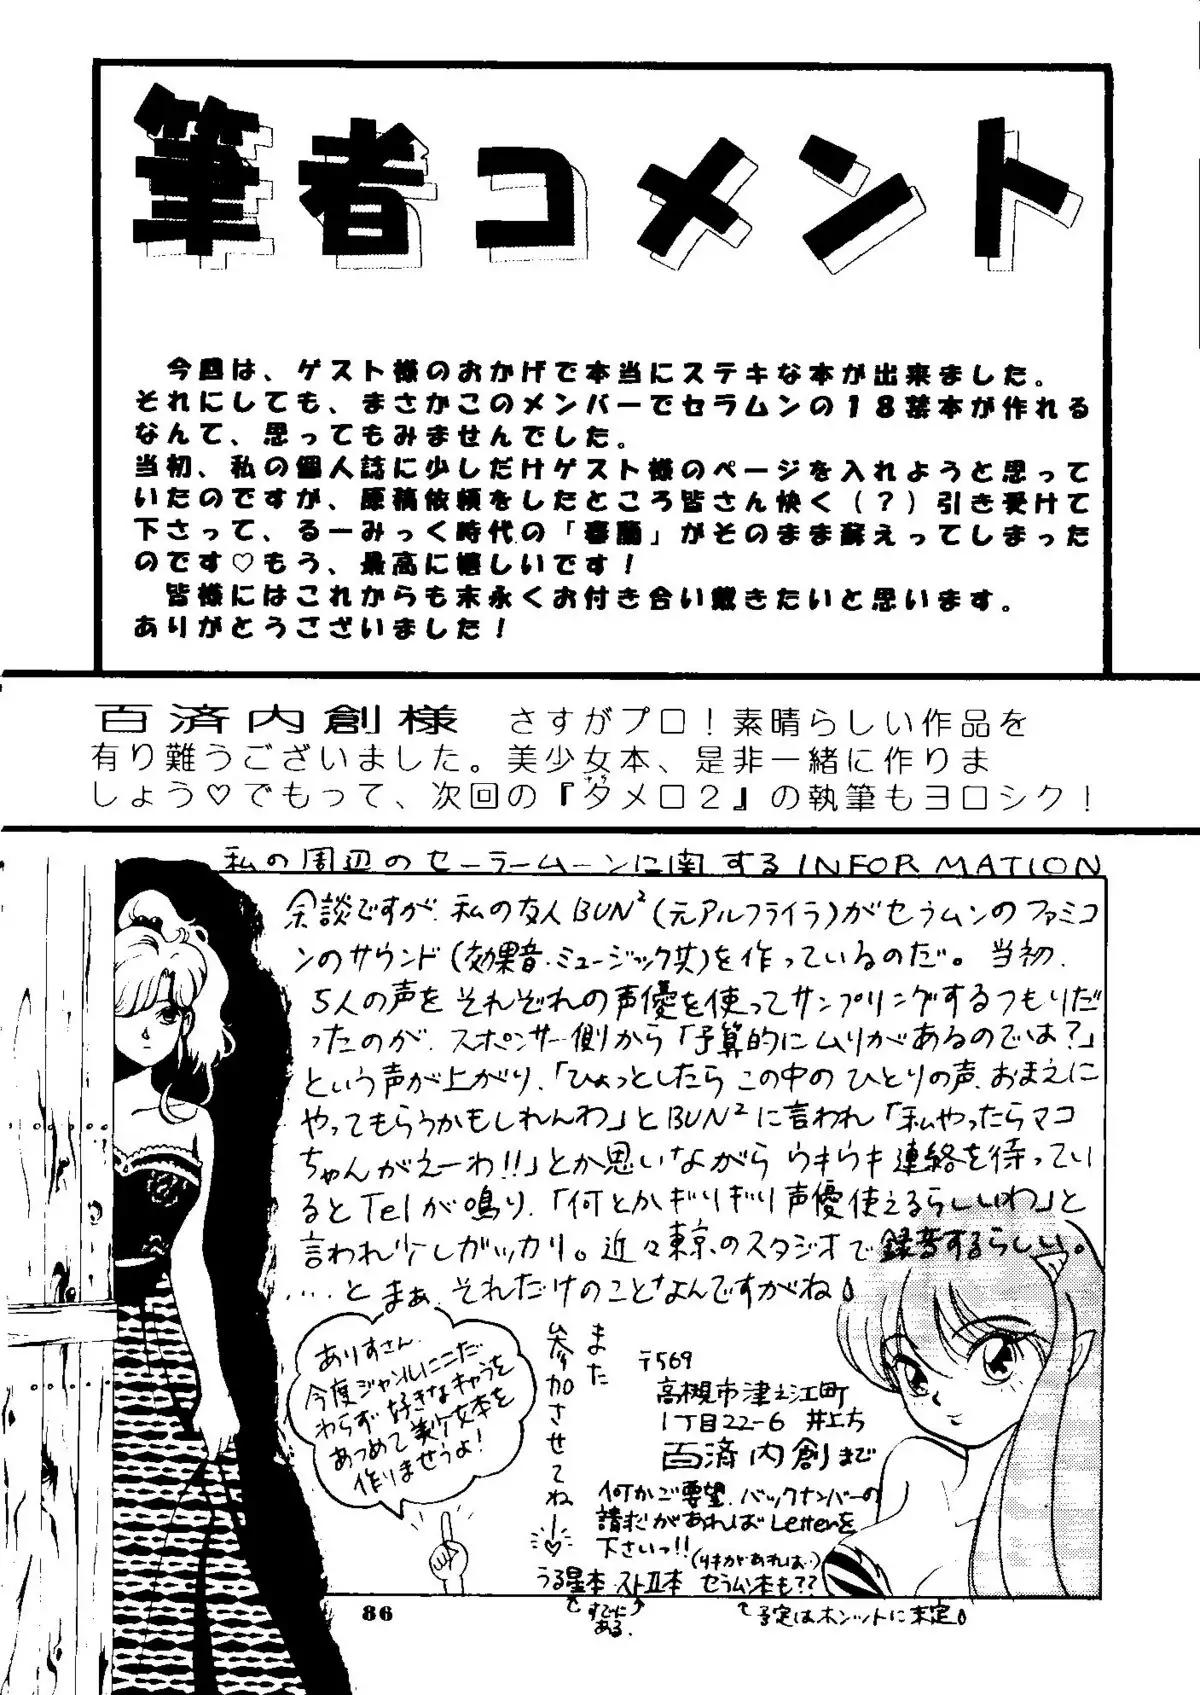 筆者コメント
今回は、ゲスト様のおかげで本当にステキな本が出来ました。
それにしても、まさかこのメンバーでセラムンの１８禁本が作れる
なんて、思ってもみませんでした。
当初、私の個人誌に少しだけゲスト様のページを入れようと思って
いたのですが、原稿依頼をしたところ皆さん快く（？）引き受けて
下さって、るーみっく時代の「春蘭」がそのまま蘇えってしまった
のです♡もう、最高に嬉しいです！
皆様にはこれからも末永くお付き合い戴きたいと思います。
ありがとうございました！
百済内創様 さすがプロ！素晴らしい作品を
有り難うございました。美少女本、是非一緒に作りま
しょう♡でもって、次回の『タメロ２』の執筆もヨロシク！
私の周辺のセーラームーンに関するINFORMATION
余談ですが、私の友人BUN²(元アルフライラ)がセラムンのファミコ
ンのサウンド(効果音・ミュージック共)を作っているのだ。当初、
5人の声をそれぞれの声優を使ってサンプリングするつもりだ
ったのが、スポンサー側から「予算的にムリがあるのでは?」
という声が上がり、「ひょっとしたらこの中のひとりの声、おまえに
やってもらうかもしれんわ」とBUN²に言われ「私やったらマコ
ちゃんがえーわ!!」とか思いながらウキウキ連絡を待ってい
るとTelが鳴り、「何とかギリギリ声優使えるらしいわ」と
言われ少しガッカリ。近々東京のスタジオで録音するらしい。
……とまぁ、それだけのことなんですがね
ありすさん、
今度ジャンルにこだ
わらず好きなキャラを
あつめて美少女本を
作りませうよ!
また
参加させてね
〒569
高槻市津之江町
1丁目22-6 井上方
百済内創まで
何かご要望、バックナンバーの
請求があればLetterを
下さいっ!!
うる星本 ストII本 セラムン本も??
すでに
ある。
予定はホンットに未定
86